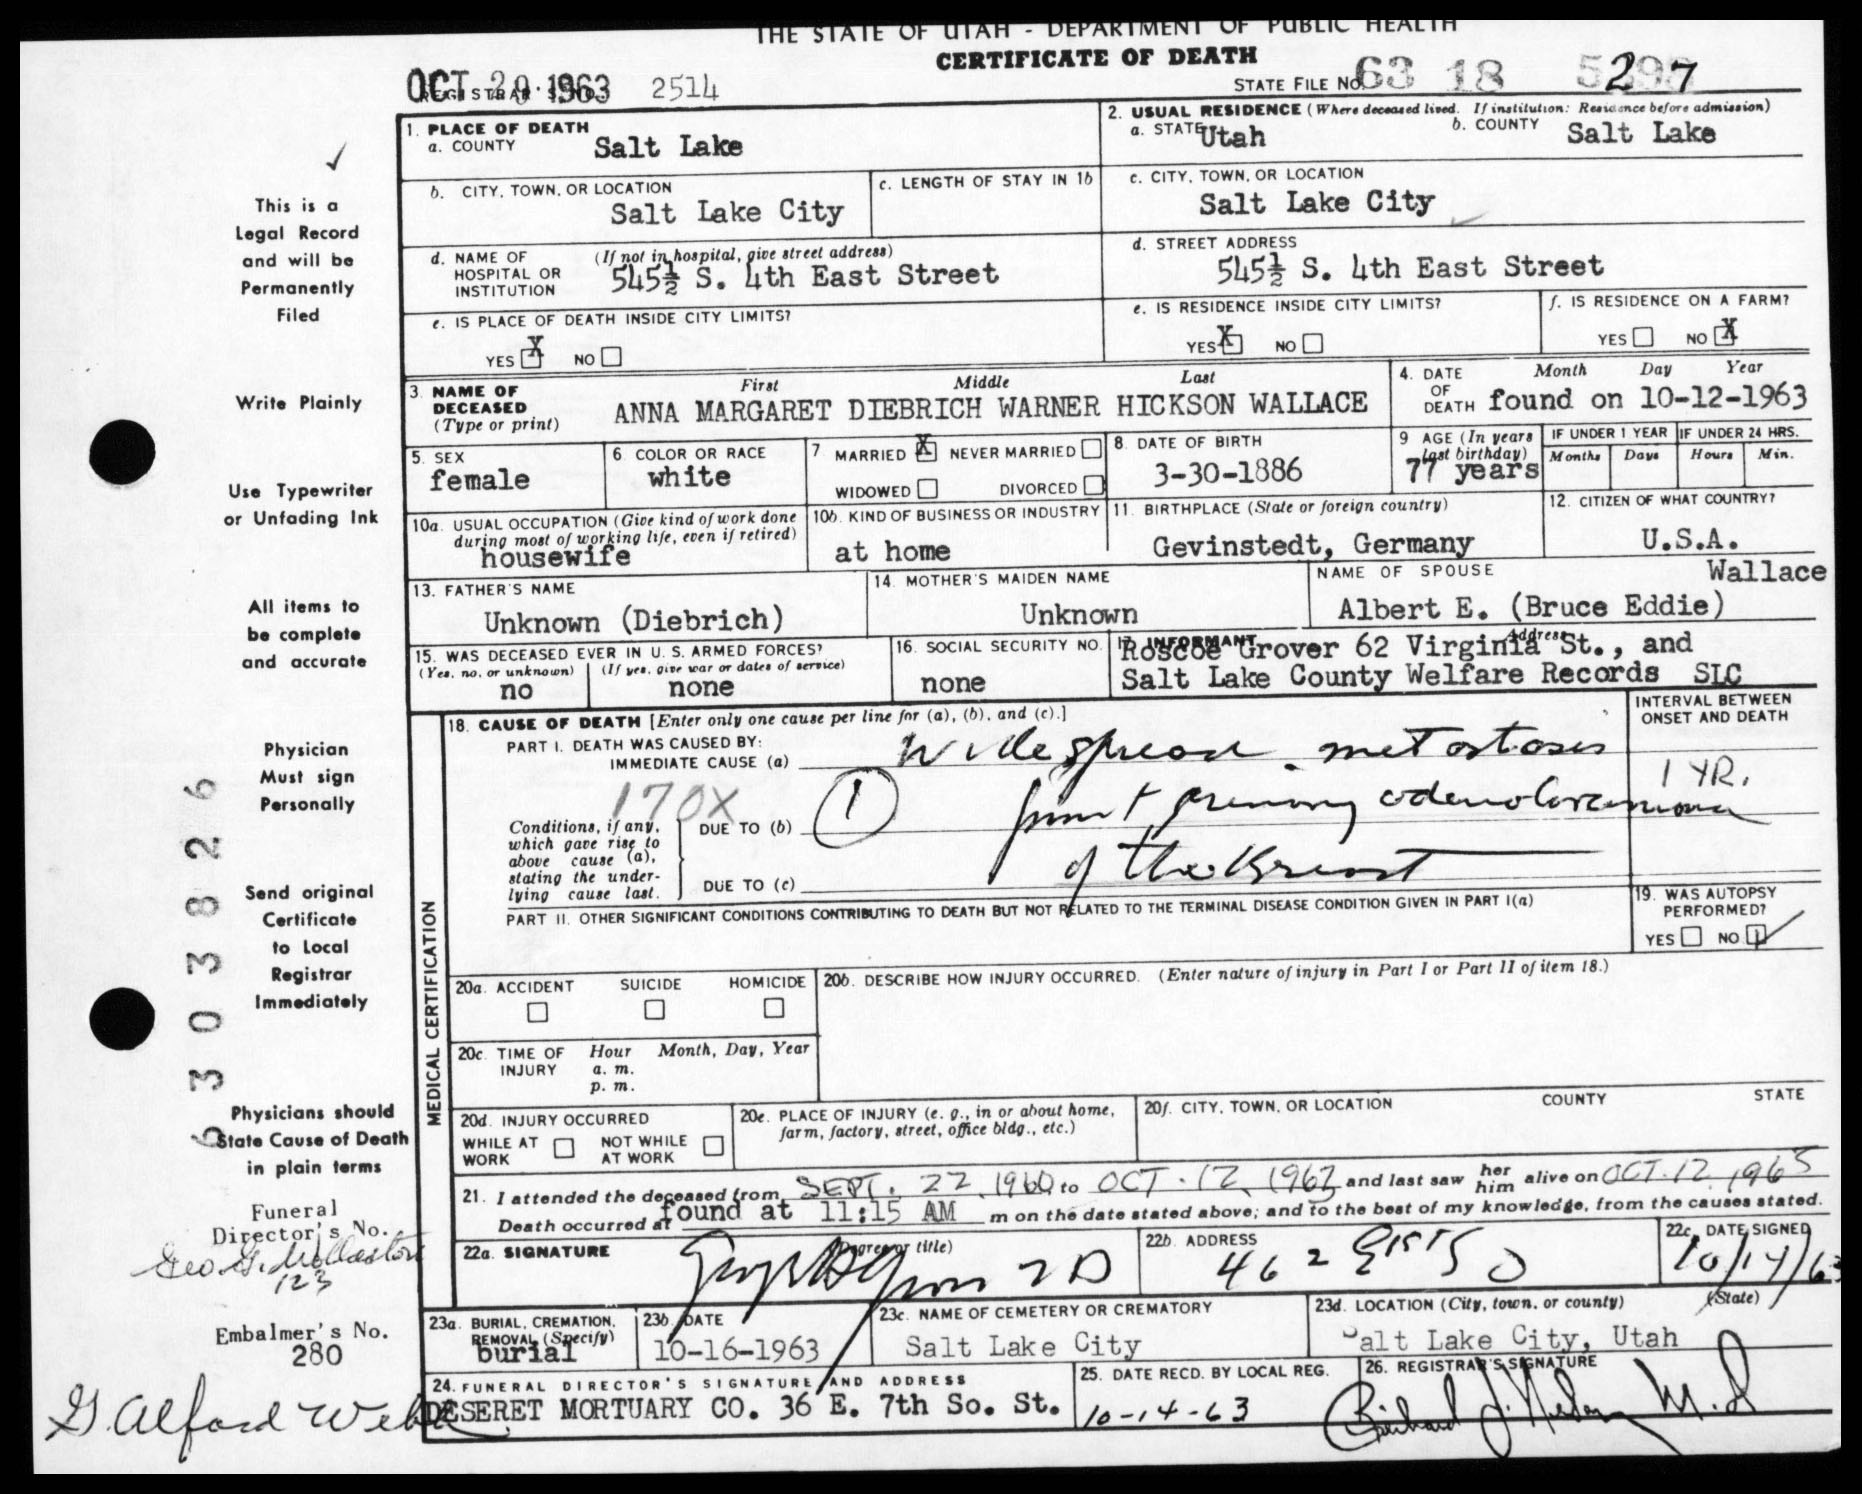 THE STATE OF UTAH - DEPARTMENT OF PUBLIC HEALTH
CERTIFICATE OF DEATH
OCT 29 1963 2514
REGISTRAR'S NO.
STATE FILE NO. 63 18 27
1. PLACE OF DEATH
a. COUNTY Salt Lake
2. USUAL RESIDENCE (Where deceased lived. If institution: Residence before admission)
a. STATE Utah b. COUNTY Salt Lake
b. CITY, TOWN, OR LOCATION
Salt Lake City
c. LENGTH OF STAY IN 1b
c. CITY, TOWN, OR LOCATION
Salt Lake City
d. NAME OF HOSPITAL OR INSTITUTION
(If not in hospital, give street address)
545½ S. 4th East Street
d. STREET ADDRESS
545½ S. 4th East Street
e. IS PLACE OF DEATH INSIDE CITY LIMITS?
YES X NO
e. IS RESIDENCE INSIDE CITY LIMITS?
YES X NO
f. IS RESIDENCE ON A FARM?
YES NO X
3. NAME OF DECEASED (Type or print)
First Middle Last
ANNA MARGARET DIEBRICH WARNER HICKSON WALLACE
4. DATE OF DEATH
Month Day Year
found on 10-12-1963
5. SEX
female
6. COLOR OR RACE
white
7. MARRIED X NEVER MARRIED
WIDOWED DIVORCED
8. DATE OF BIRTH
3-30-1886
9 AGE (In years last birthday)
77 years
IF UNDER 1 YEAR
Months Days
IF UNDER 24 HRS.
Hours Min.
10a. USUAL OCCUPATION (Give kind of work done during most of working life, even if retired)
housewife
10b. KIND OF BUSINESS OR INDUSTRY
at home
11. BIRTHPLACE (State or foreign country)
Gevinstedt, Germany
12. CITIZEN OF WHAT COUNTRY?
U.S.A.
13. FATHER'S NAME
Unknown (Diebrich)
14. MOTHER'S MAIDEN NAME
Unknown
NAME OF SPOUSE
Wallace
Albert E. (Bruce Eddie)
15. WAS DECEASED EVER IN U. S. ARMED FORCES?
(Yes, no, or unknown) (If yes, give war or dates of service)
no none
16. SOCIAL SECURITY NO.
none
17. INFORMANT Address
Roscoe Grover 62 Virginia St., and
Salt Lake County Welfare Records SLC
18. CAUSE OF DEATH [Enter only one cause per line for (a), (b), and (c).]
INTERVAL BETWEEN ONSET AND DEATH
PART I. DEATH WAS CAUSED BY:
IMMEDIATE CAUSE (a) Widespread metastases
1 YR.
170X
Conditions, if any, which gave rise to above cause (a), stating the under-lying cause last.
DUE TO (b) 1 from primary adenocarcinoma
DUE TO (c) of the Breast
PART II. OTHER SIGNIFICANT CONDITIONS CONTRIBUTING TO DEATH BUT NOT RELATED TO THE TERMINAL DISEASE CONDITION GIVEN IN PART I(a)
19. WAS AUTOPSY PERFORMED?
YES NO ✓
MEDICAL CERTIFICATION
20a. ACCIDENT SUICIDE HOMICIDE
20b. DESCRIBE HOW INJURY OCCURRED. (Enter nature of injury in Part I or Part II of item 18.)
20c. TIME OF INJURY
Hour Month, Day, Year
a. m.
p. m.
20d. INJURY OCCURRED
WHILE AT WORK NOT WHILE AT WORK
20e. PLACE OF INJURY (e. g., in or about home, farm, factory, street, office bldg., etc.)
20f. CITY, TOWN, OR LOCATION COUNTY STATE
21. I attended the deceased from SEPT. 22, 1960 to OCT. 12, 1963 and last saw her him alive on OCT. 12, 1963
Death occurred at found at 11:15 AM m on the date stated above; and to the best of my knowledge, from the causes stated.
22a. SIGNATURE (Degree or title)
22b. ADDRESS
462
22c. DATE SIGNED
10/14/63
23a. BURIAL, CREMATION, REMOVAL (Specify)
burial
23b. DATE
10-16-1963
23c. NAME OF CEMETERY OR CREMATORY
Salt Lake City
23d. LOCATION (City, town, or county) (State)
Salt Lake City, Utah
24. FUNERAL DIRECTOR'S SIGNATURE AND ADDRESS
DESERET MORTUARY CO. 36 E. 7th So. St.
25. DATE RECD. BY LOCAL REG.
10-14-63
26. REGISTRAR'S SIGNATURE
✓
This is a
Legal Record
and will be
Permanently
Filed
Write Plainly
Use Typewriter
or Unfading Ink
All items to
be complete
and accurate
Physician
Must sign
Personally
Send original
Certificate
to Local
Registrar
Immediately
Physicians should
State Cause of Death
in plain terms
6 3 0 3 8 2 6
Funeral
Director's No.
Geo. G. Mollaston
123
Embalmer's No.
280
G. Alford Webb